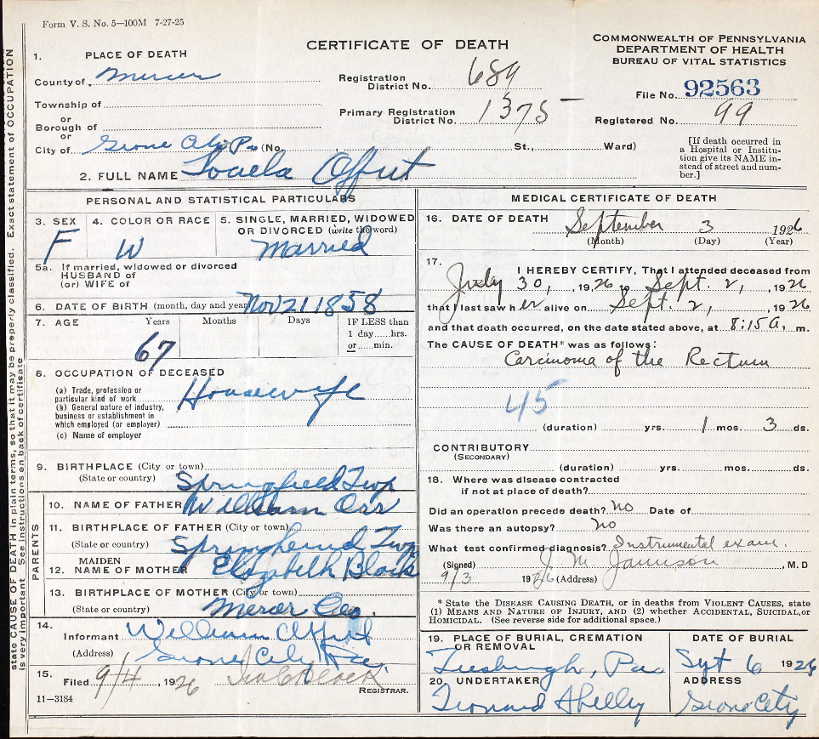 Form V. S. No. 5—100M 7-27-25
CERTIFICATE OF DEATH
COMMONWEALTH OF PENNSYLVANIA
DEPARTMENT OF HEALTH
BUREAU OF VITAL STATISTICS
1. PLACE OF DEATH
County of Mercer
Township of
or
Borough of
or
City of Grove City Pa (No.
Registration District No. 689
Primary Registration District No. 1375
St., Ward)
File No. 92563
Registered No. 99
[If death occurred in a Hospital or Institution give its NAME instead of street and number.]
2. FULL NAME Louela Offut
PERSONAL AND STATISTICAL PARTICULARS
3. SEX F
4. COLOR OR RACE W
5. SINGLE, MARRIED, WIDOWED OR DIVORCED (write the word) Married
5a. If married, widowed or divorced
HUSBAND of
(or) WIFE of
6. DATE OF BIRTH (month, day and year) Nov 21 1858
7. AGE Years Months Days
IF LESS than 1 day......hrs. or......min.
67
8. OCCUPATION OF DECEASED
(a) Trade, profession or particular kind of work Housewife
(b) General nature of industry, business or establishment in which employed (or employer)
(c) Name of employer
9. BIRTHPLACE (City or town)
(State or country) Springfield Twp
PARENTS
10. NAME OF FATHER William Orr
11. BIRTHPLACE OF FATHER (City or town)
(State or country) Springfield Twp
12. MAIDEN NAME OF MOTHER Elizabeth Black
13. BIRTHPLACE OF MOTHER (City or town)
(State or country) Mercer Co
14. Informant William Offut
(Address) Grove City Pa.
15. Filed 9/4, 1926
REGISTRAR.
11-3184
MEDICAL CERTIFICATE OF DEATH
16. DATE OF DEATH September 3 1926
(Month) (Day) (Year)
17. I HEREBY CERTIFY, That I attended deceased from
July 30, , 1926 to Sept. 2, , 1926
that I last saw her alive on Sept. 2, , 1926
and that death occurred, on the date stated above, at 8:15 A. m.
The CAUSE OF DEATH* was as follows:
Carcinoma of the Rectum
45
(duration) yrs. 1 mos. 3 ds.
CONTRIBUTORY
(SECONDARY)
(duration) yrs. mos. ds.
18. Where was disease contracted
if not at place of death?
Did an operation precede death? No Date of
Was there an autopsy? No
What test confirmed diagnosis? Instrumental exam.
(Signed) J. M. Jamison, M.D
9/3 1926 (Address)
* State the DISEASE CAUSING DEATH, or in deaths from VIOLENT CAUSES, state
(1) MEANS AND NATURE OF INJURY, and (2) whether ACCIDENTAL, SUICIDAL, or
HOMICIDAL. (See reverse side for additional space.)
19. PLACE OF BURIAL, CREMATION OR REMOVAL
Leesburgh, Pa
DATE OF BURIAL
Sept 6 1926
20. UNDERTAKER
Leonard Shelley
ADDRESS
Grove City
state CAUSE OF DEATH in plain terms, so that it may be properly classified. Exact statement of OCCUPATION
is very important. See instructions on back of certificate